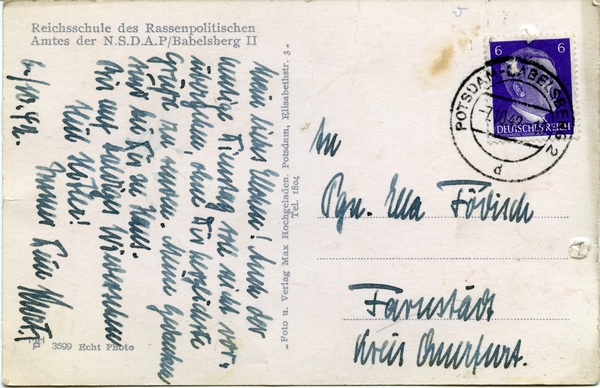 Reichsschule des Rassenpolitischen
Amtes der N.S.D.A.P/Babelsberg II
6/10.42.
Mein liebes Ellen! Auch der
zweite Dienstag soll nicht vor-
übergehen, ohne Dir herzlichste
Grüße zu senden. Meine Gedanken
sind bei Dir zu Haus.
Dir auf baldiges Wiedersehen
Heil Hitler!
Immer Dein Kurt.
MH
P 3599 Echt Photo
-Foto u. Verlag Max Hochgeladen. Potsdam, Elisabethstr. 3-
Tel. 1804
6 6
DEUTSCHES REICH
POTSDAM-BABELSBERG 2
7.10.42
d
An
Pgn. Ella Födisch
Farnstädt
Kreis Querfurt.